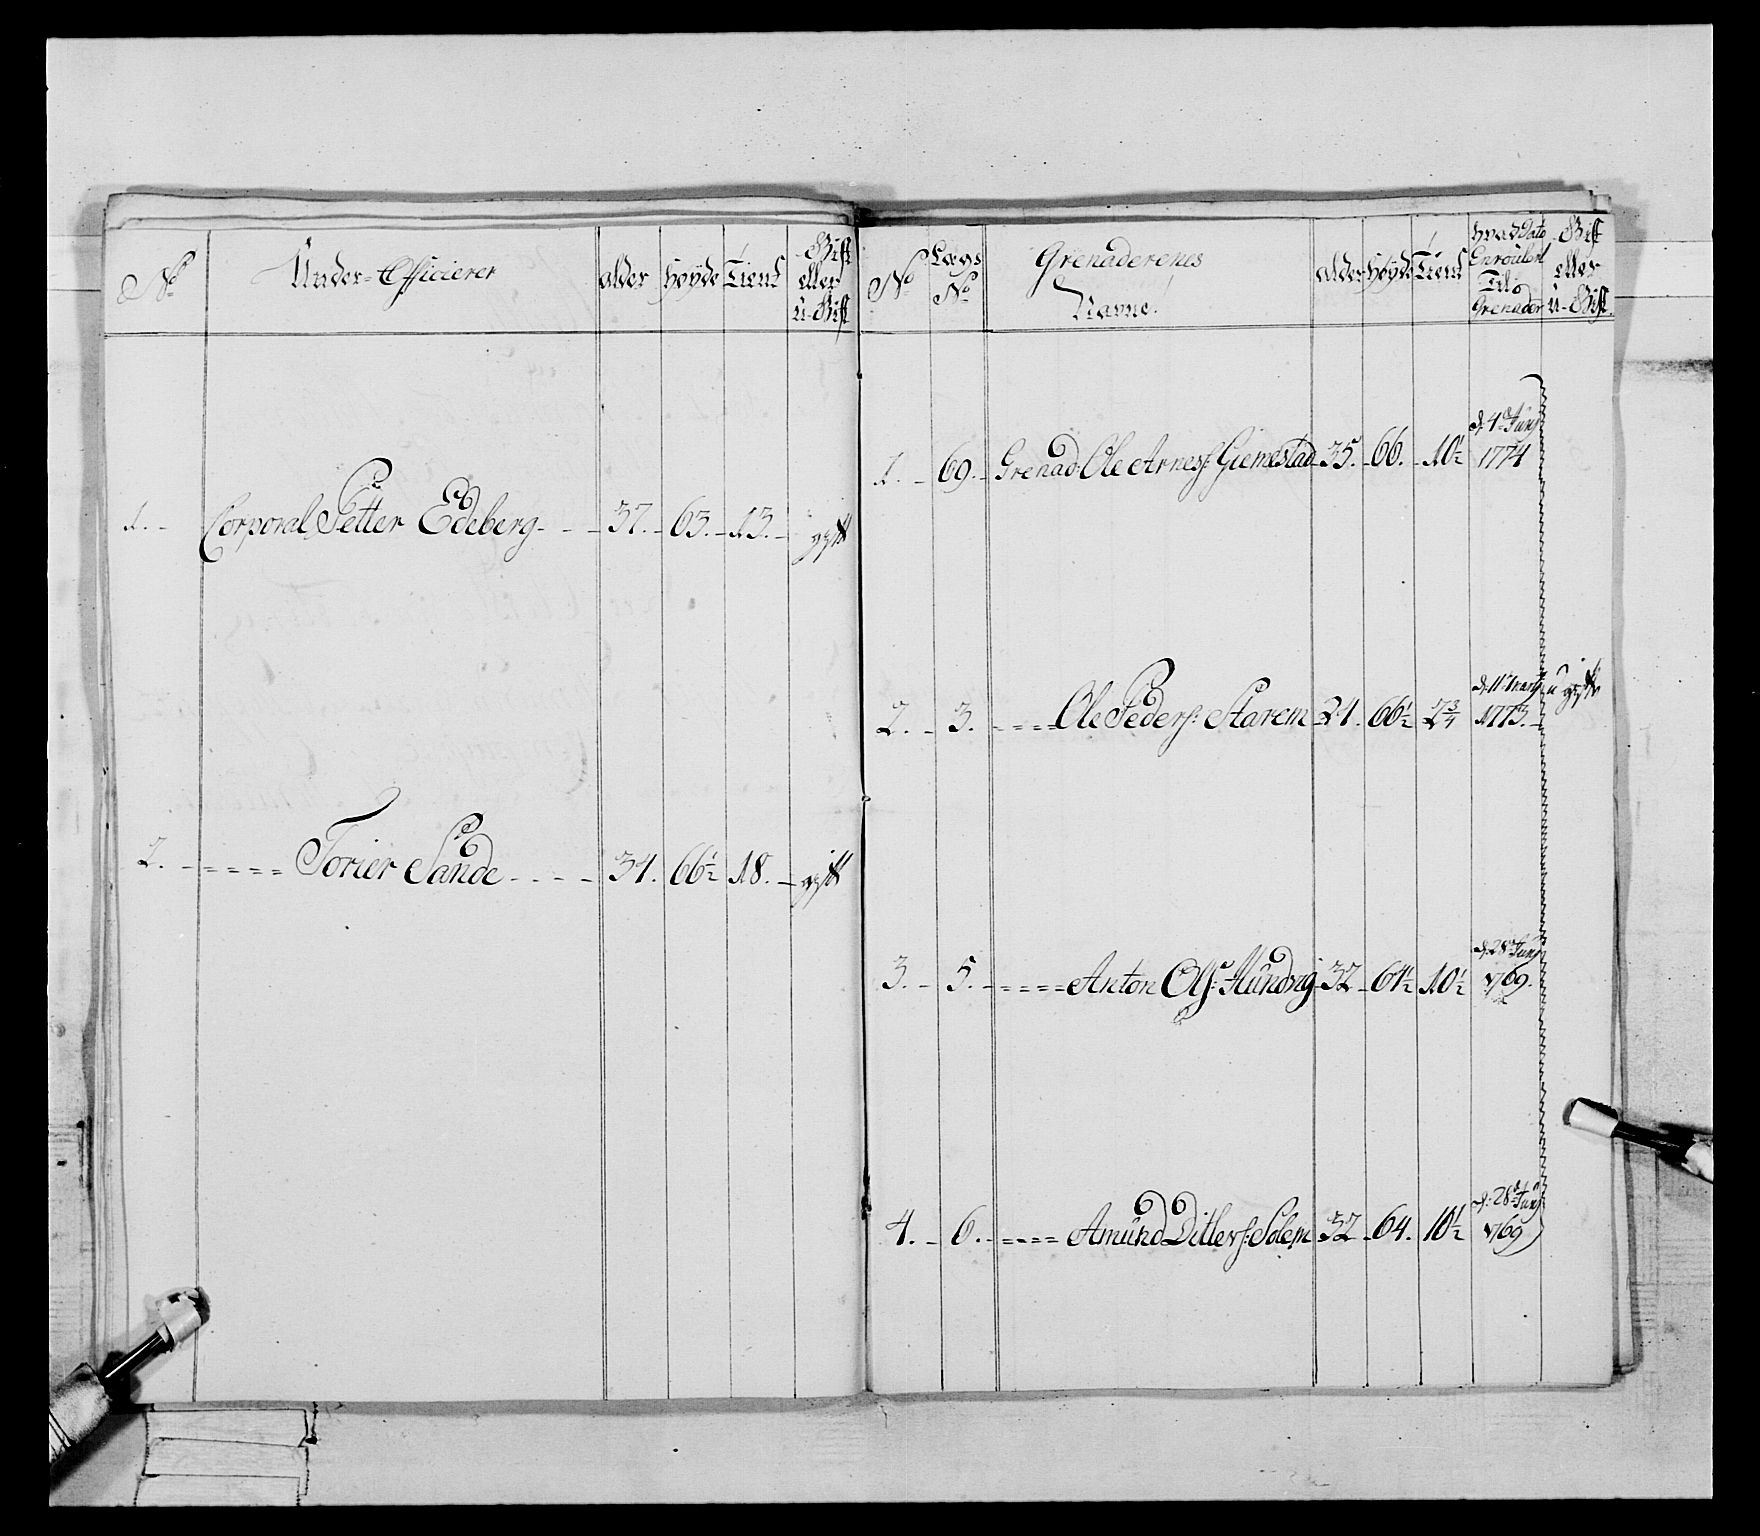 No
Under-Officierer
alder
høyde
Tient
Gift
eller
U-Gift
1.
Corporal Petter Edeberg
37.
63.
13.
gift
2.
Torier Sande
34.
66½
18.
gift
No
Lægs
No
Grenaderenes
Navne.
alder
høyde
Tient
hvad Dato
Enroulert
Til
Grenader
Gift
eller
U-Gift.
1.
69.
Grenad: Ole Arnes: Giemestad
35.
66.
10½
d. 4de Junj
1774
2.
3.
Ole Peders: Starem
24.
66½
2¾
d. 11te Martj
1773.
u gift
3.
5.
Anton Ols:
32
64½
10½
d. 28de Junj
1769.
4.
6.
Amund Ditlevs: Solem
32
64.
10½
d. 28de Junj
1769